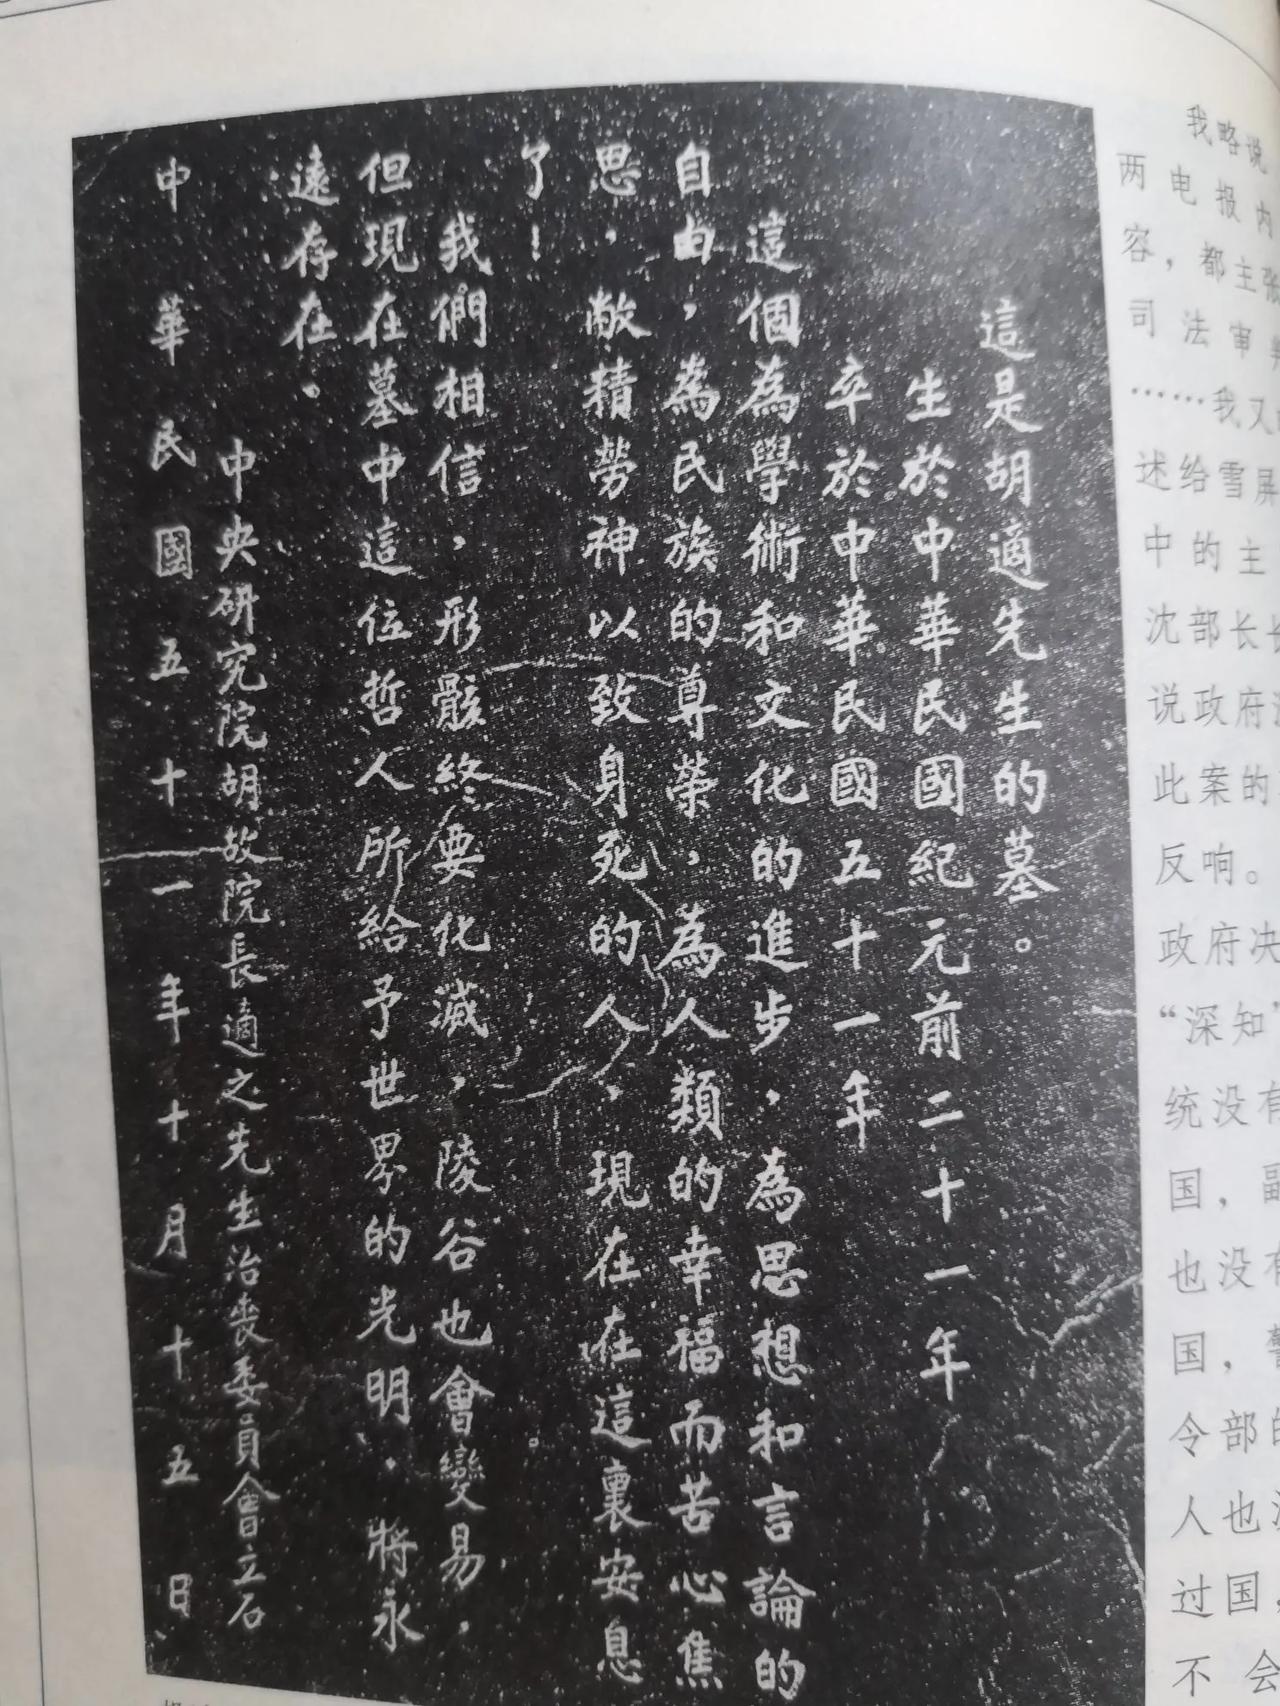 這是胡適先生的墓。
生於中華民國紀元前二十一年
卒於中華民國五十一年
這個為學術和文化的進步，為思想和言論的
自由，為民族的尊榮，為人類的幸福而苦心焦
思，敝精勞神以致身死的人，現在在這裏安息
了！
我們相信，形骸終要化滅，陵谷也會變易，
但現在墓中這位哲人所給予世界的光明，將永
遠存在。
中央研究院胡故院長適之先生治喪委員會立石
中華民國五十一年十月十五日
我略说
两电报内
容，都主张
司法审
……我又
述给雪屏
中的主
沈部长
说政府
此案的
反响。
政府决
“深知”
统没有
国，副
也没有
国，警
令部的
人也没
过国，
不会